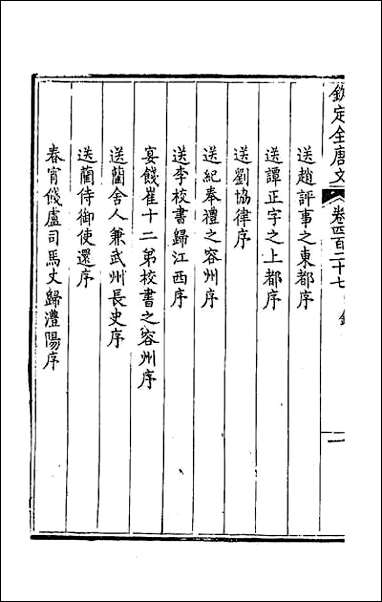 欽定全唐文 卷四百二十七 一
送趙評事之東都序
送譚正字之上都序
送劉協律序
送紀奉禮之容州序
送李校書歸江西序
宴餞崔十二弟校書之容州序
送藺舍人兼武州長史序
送藺侍御使還序
春宵餞盧司馬丈歸澧陽序